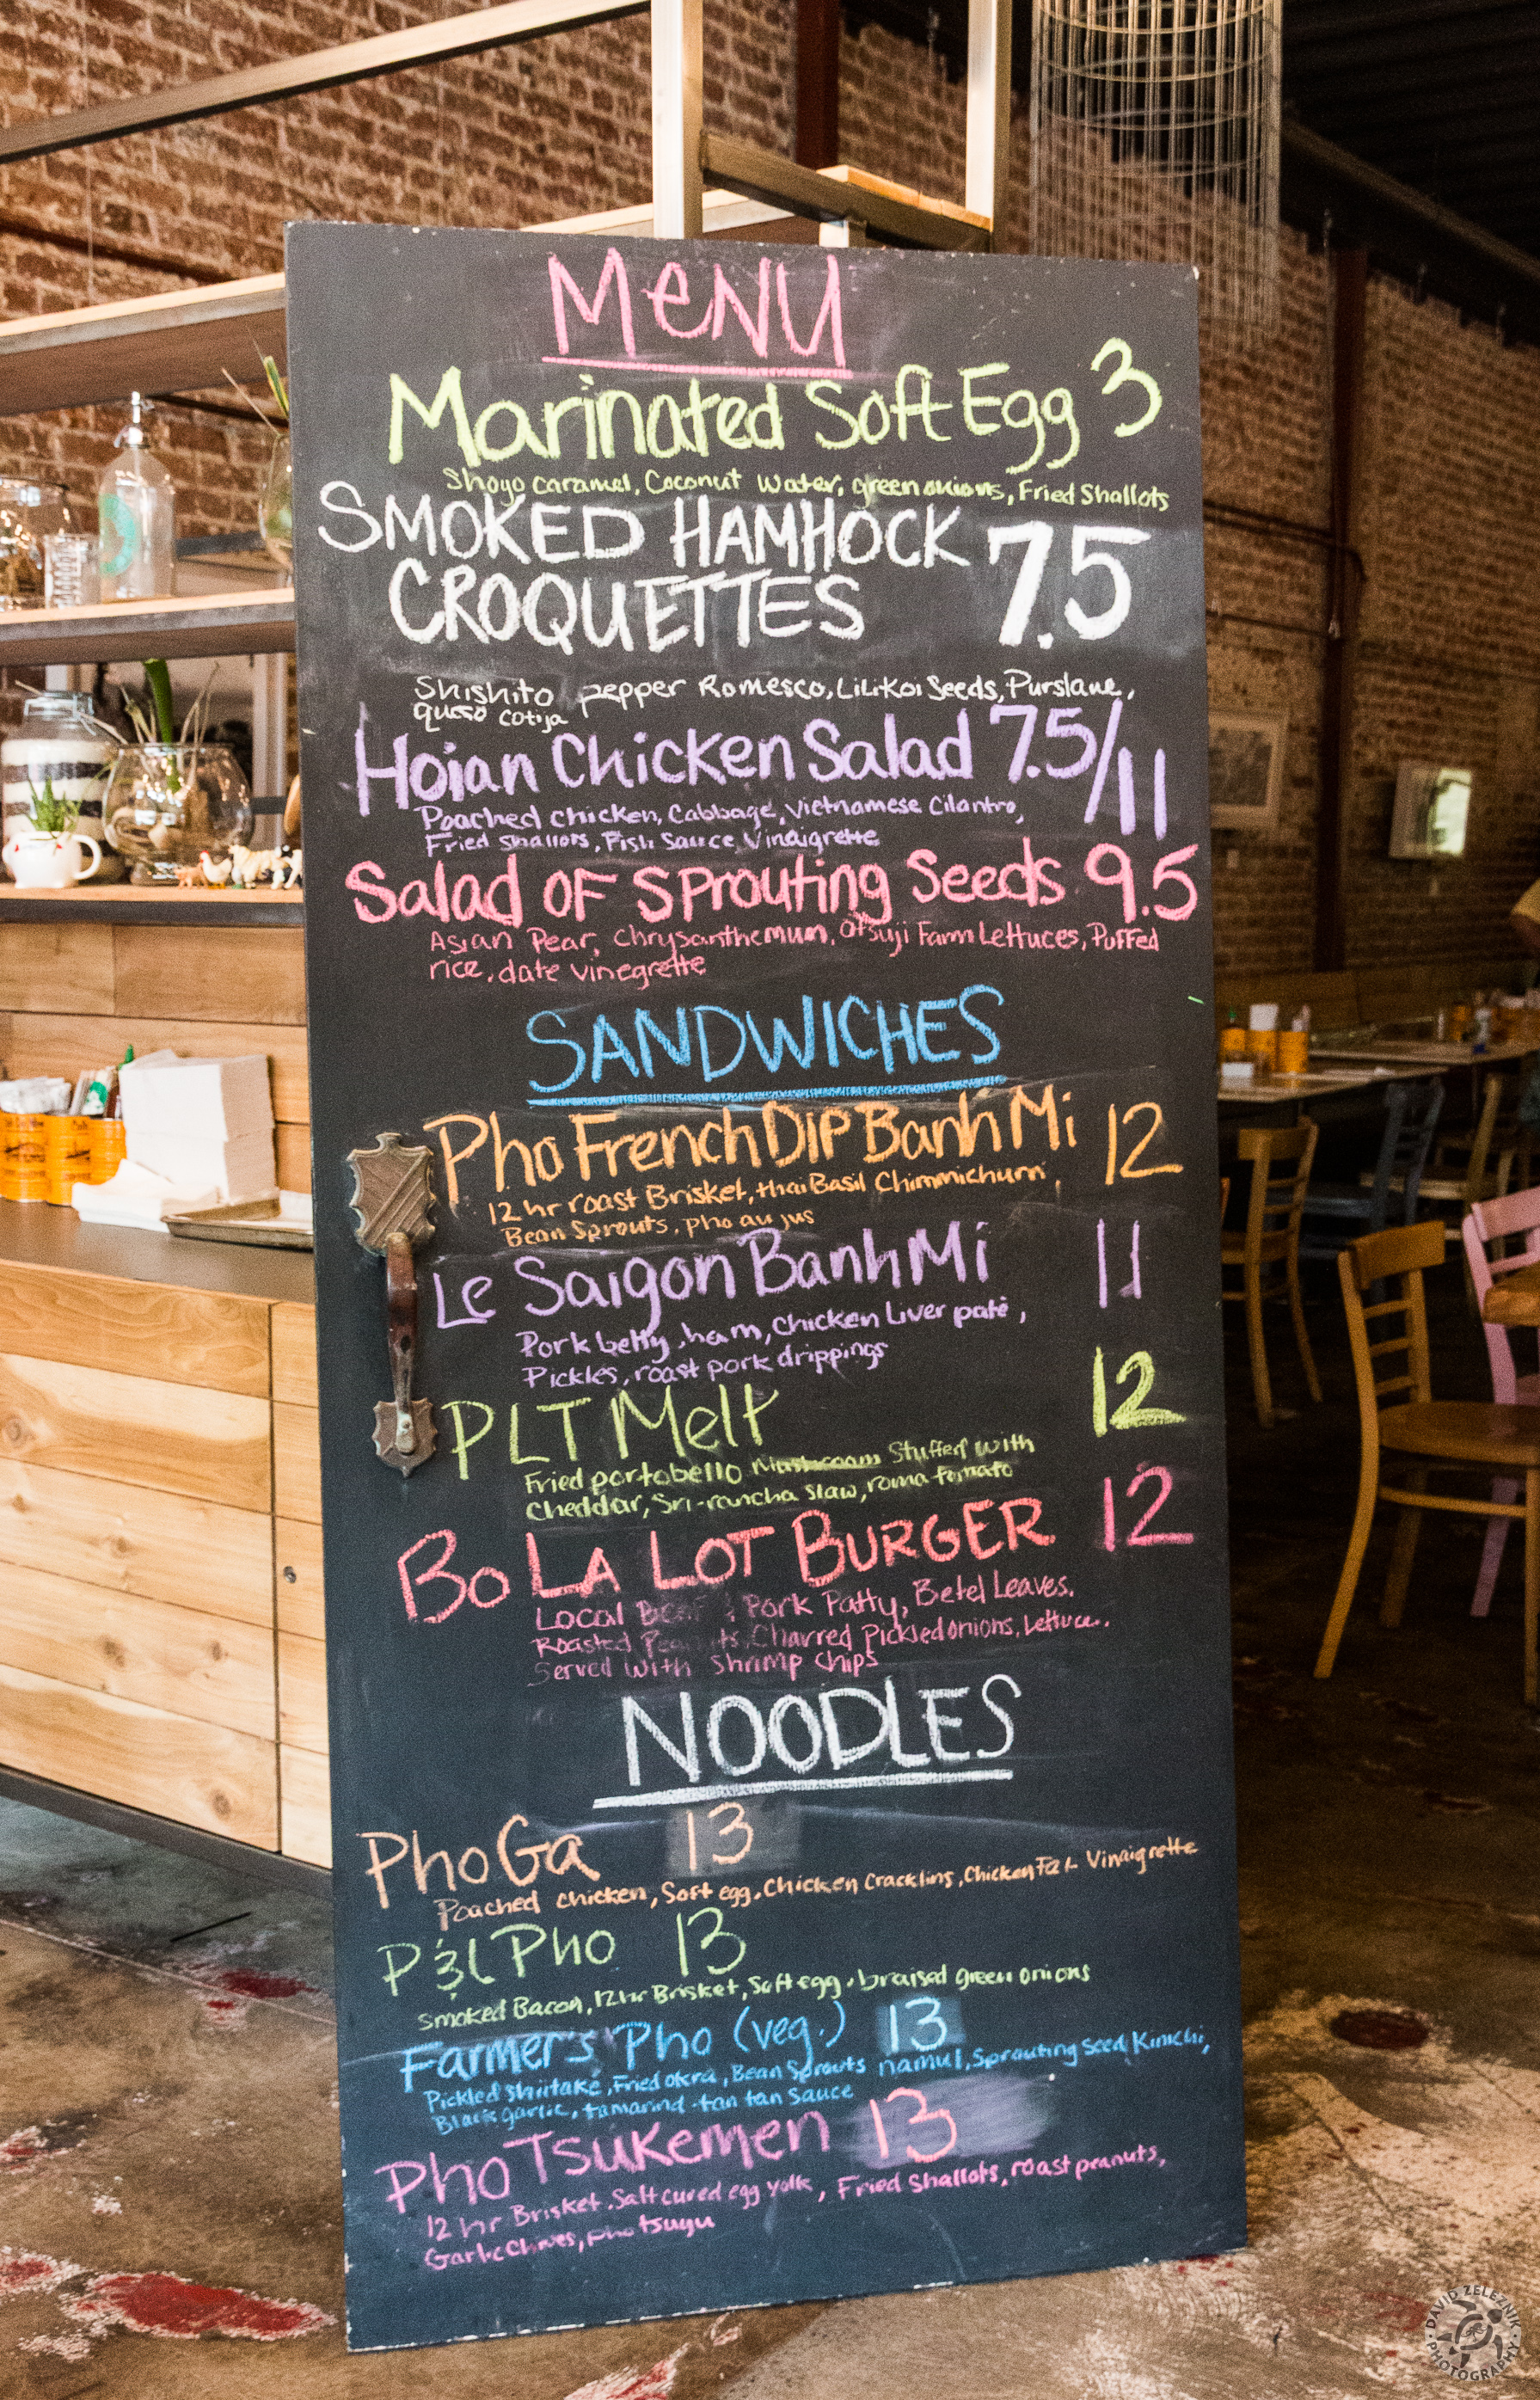 MENU
Marinated Soft Egg 3
Shoyo caramel, Coconut Water, green onions, Fried Shallots
SMOKED HAMHOCK
CROQUETTES 7.5
Shishito pepper Romesco, LiLiKoi Seeds, Purslane,
queso cotija
Hoian Chicken Salad 7.5/11
Poached chicken, Cabbage, Vietnamese Cilantro,
Fried shallots, Fish Sauce Vinaigrette
Salad OF Sprouting Seeds 9.5
Asian Pear, Chrysanthemum, Otsuji Farm Lettuces, Puffed
rice, date vinegrette
SANDWICHES
Pho French Dip Banh Mi 12
12 hr roast Brisket, thai Basil Chimmichurri,
Bean Sprouts, pho au jus
Le Saigon Banh Mi 11
Pork belly, ham, chicken Liver paté,
Pickles, roast pork drippings
PLT Melt 12
Fried portobello Mushroom Stuffed with
Cheddar, Sri-rancha slaw, roma tomato
BO LA LOT BURGER 12
Local Beef & Pork Patty, Betel Leaves,
Roasted Peanuts, Charred Pickled onions, Lettuce.
Served with shrimp chips
NOODLES
Pho Ga 13
Poached chicken, Soft egg, Chicken Cracklins, Chicken Fat Vinaigrette
P&L Pho 13
Smoked Bacon, 12hr Brisket, Soft egg, braised green onions
Farmer's Pho (veg.) 13
Pickled shiitake, Fried okra, Bean Sprouts namul, Sprouting Seed Kimchi,
Black garlic, tamarind-tan tan sauce
Pho Tsukemen 13
12 hr Brisket, Salt cured egg yolk, Fried Shallots, roast peanuts,
Garlic Chives, pho tsuyu
DAVID ZELEZNIK
PHOTOGRAPHY